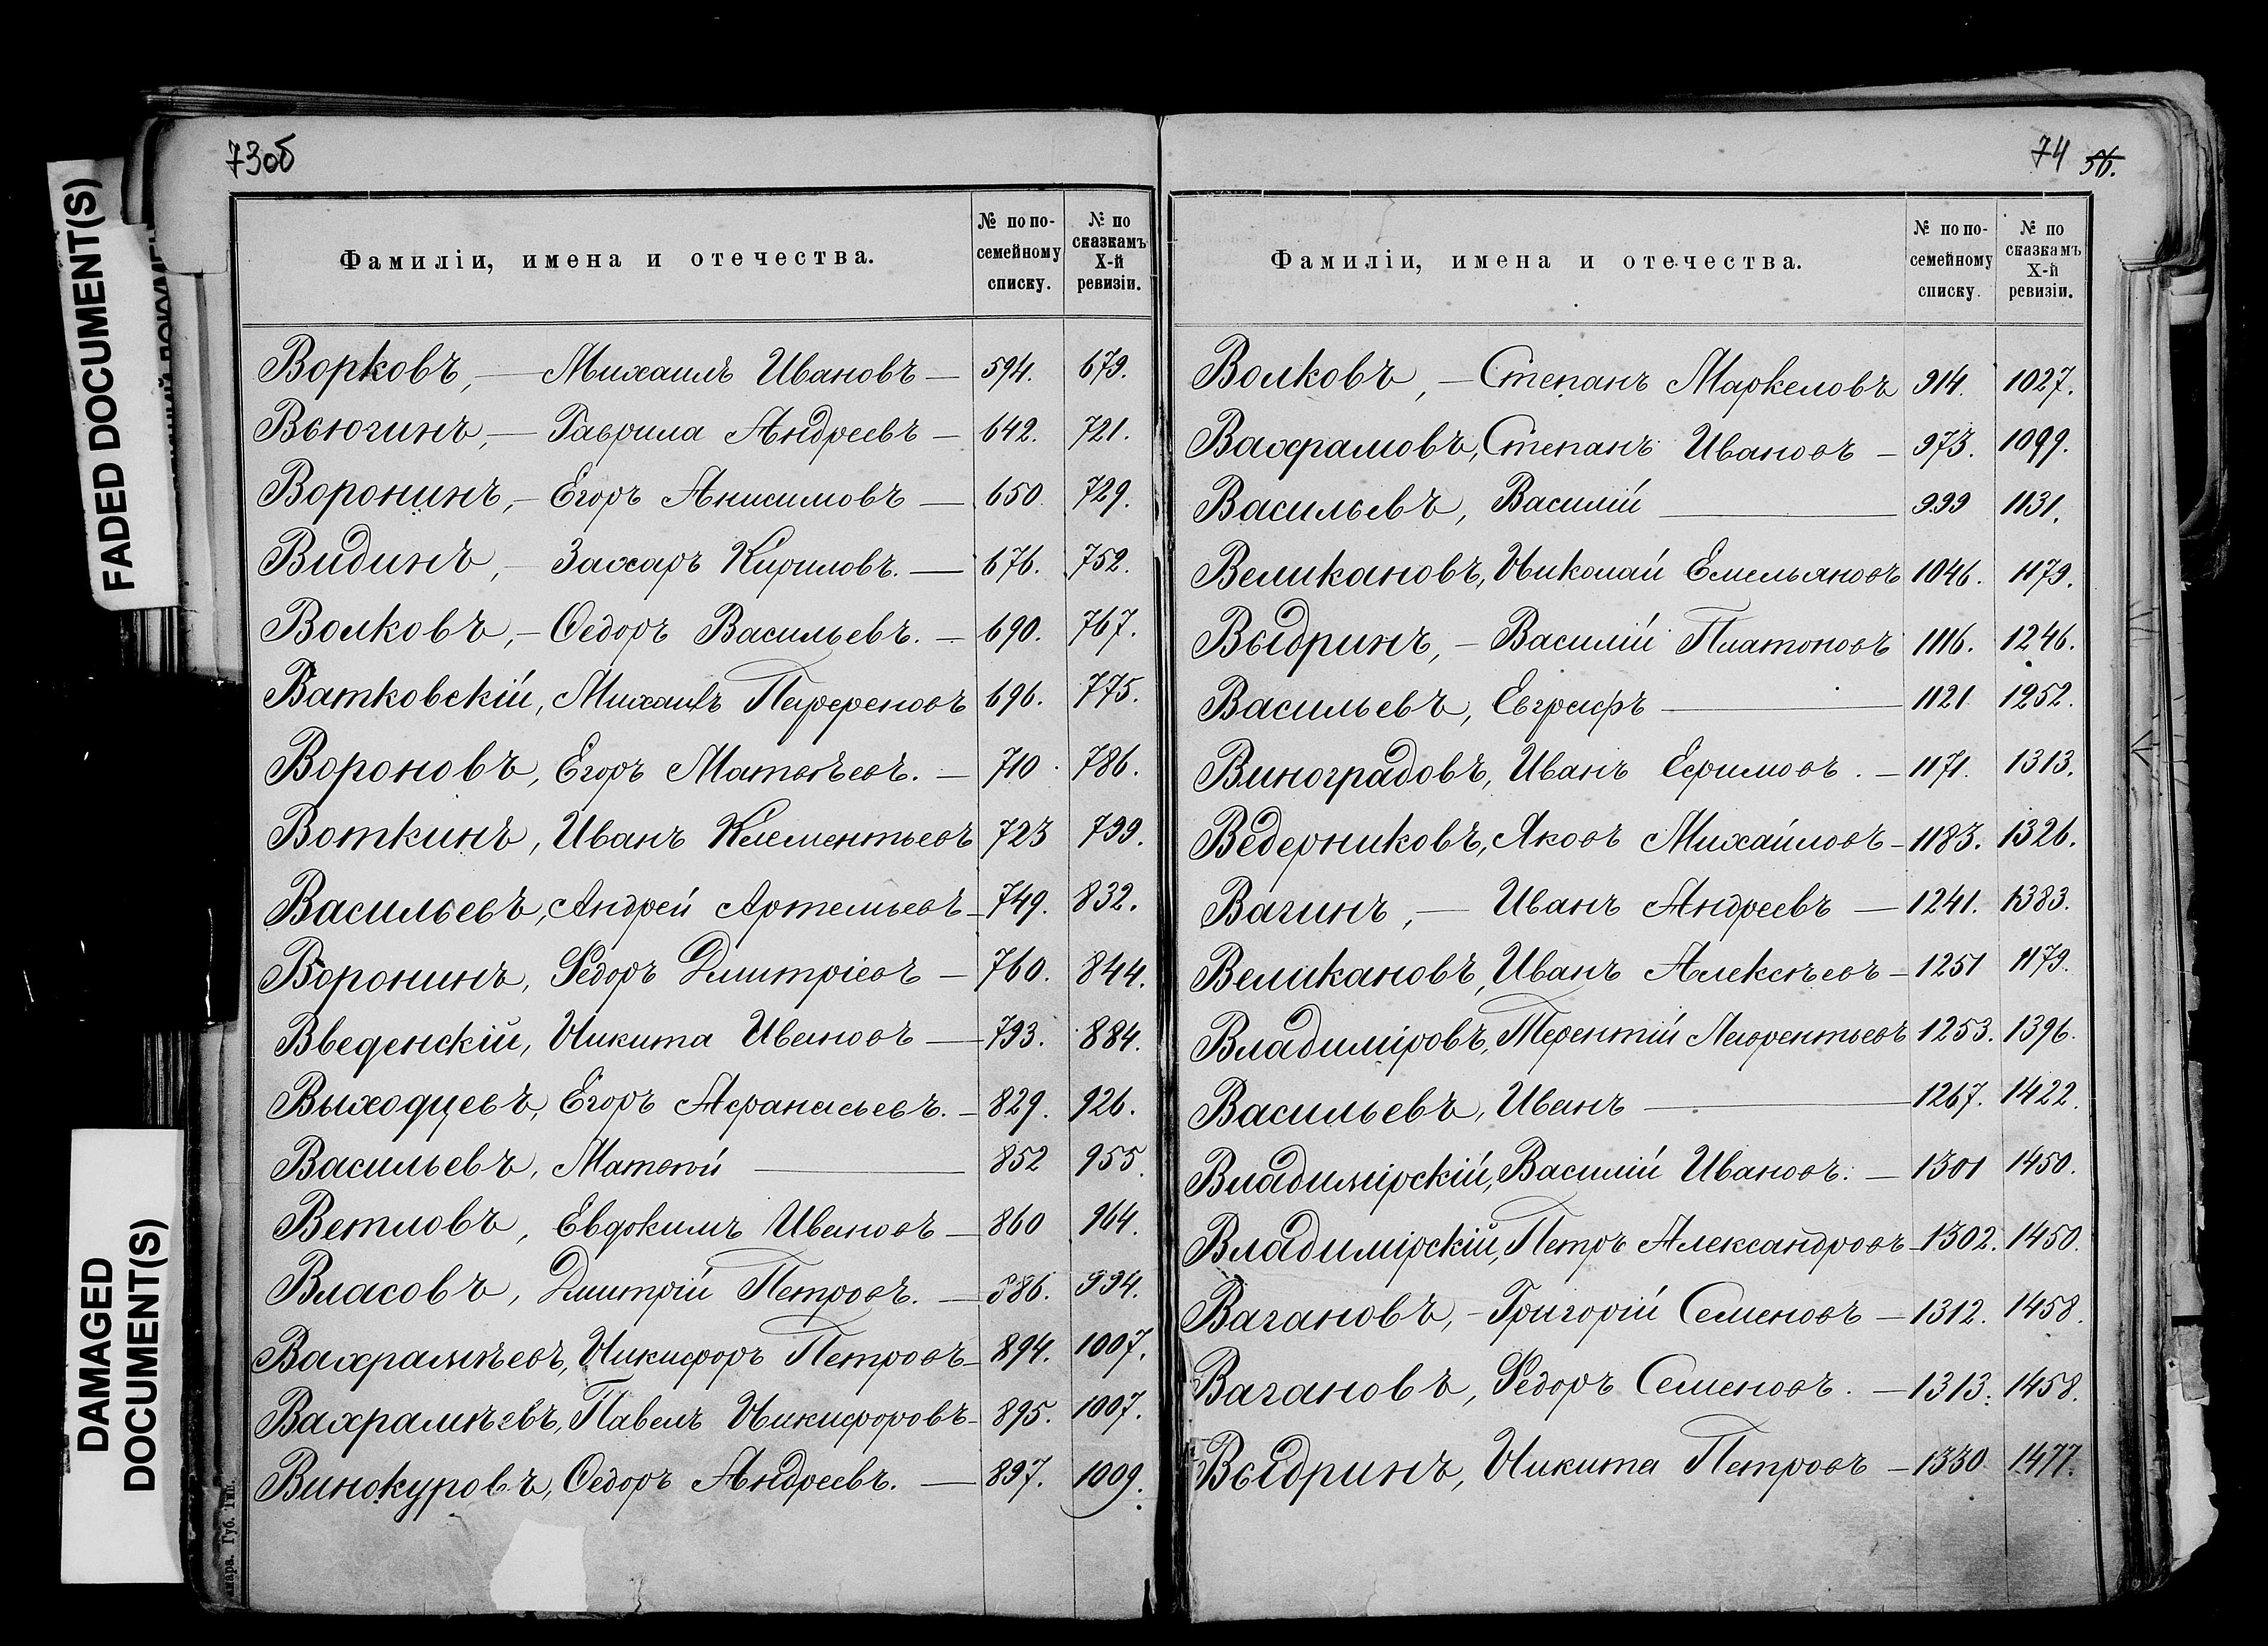 73об
Фамиліи, имена и отечества.
№ по по-
семейному
списку.
№ по
сказкамъ
X-й
ревизіи.
Ворковъ, — Михаилъ Ивановъ — 594. 679.
Вьюгинъ, — Гаврила Андреевъ — 642. 721.
Воронинъ, — Егоръ Анисимовъ — 650 729.
Видинъ, — Захаръ Кириловъ. — 676. 752.
Волковъ, — Ѳедоръ Васильевъ. — 690. 767.
Ватковскій, Михаилъ Парфеновъ 696. 775.
Вороновъ, Егоръ Матвѣевъ. — 710 786.
Воткинъ, Иванъ Клементьевъ 723 799.
Васильевъ, Андрей Артемьевъ — 749. 832.
Воронинъ, Федоръ Дмитріевъ — 760. 844.
Введенскій, Никита Ивановъ — 793. 884.
Выходцевъ, Егоръ Афанасьевъ. — 829. 926.
Васильевъ, Матвѣй — 852 955.
Ветловъ, Евдокимъ Ивановъ — 860 964.
Власовъ, Дмитрій Петровъ. — 886. 994.
Вахрамѣевъ, Никифоръ Петровъ — 894. 1007.
Вахрамѣевъ, Павелъ Никифоровъ — 895. 1007.
Винокуровъ, Ѳедоръ Андреевъ. — 897. 1009.
74 56.
Фамиліи, имена и отечества.
№ по по-
семейному
списку.
№ по
сказкамъ
X-й
ревизіи.
Волковъ, — Степанъ Маркеловъ 914. 1027.
Вахрамовъ, Степанъ Ивановъ — 973. 1099.
Васильевъ, Василій — 999 1131.
Великановъ, Николай Емельяновъ 1046. 1179.
Выдринъ, — Василій Платоновъ 1116. 1246.
Васильевъ, Евграфъ — 1121 1252.
Виноградовъ, Иванъ Ефимовъ. — 1171. 1313.
Ведерниковъ, Яковъ Михайловъ — 1183. 1326.
Вагинъ, — Иванъ Андреевъ — 1241. 1383.
Великановъ, Иванъ Алексѣевъ — 1251 1179.
Владиміровъ, Терентій Лаврентьевъ 1253. 1396.
Васильевъ, Иванъ — 1267. 1422.
Владимірскій, Василій Ивановъ. — 1301 1450.
Владимірскій, Петръ Александровъ — 1302. 1450.
Вагановъ, — Григорій Семеновъ — 1312. 1458.
Вагановъ, Федоръ Семеновъ. — 1313. 1458.
Выдринъ, Никита Петровъ — 1330 1477.
FADED DOCUMENT(S)
DAMAGED
DOCUMENT(S)
Губ. Тип.